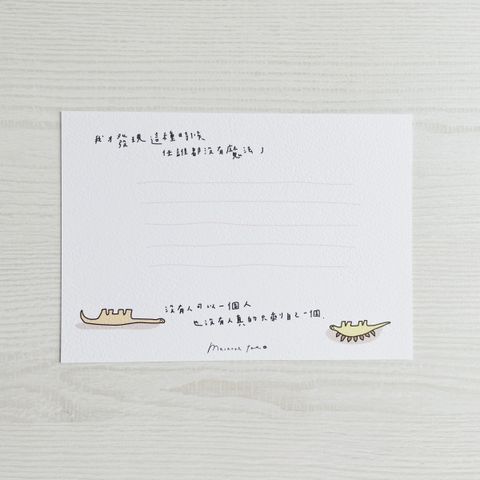 我才發現這種時候
任誰都沒有魔法」
沒有人可以一個人
也沒有人真的只剩自己一個.